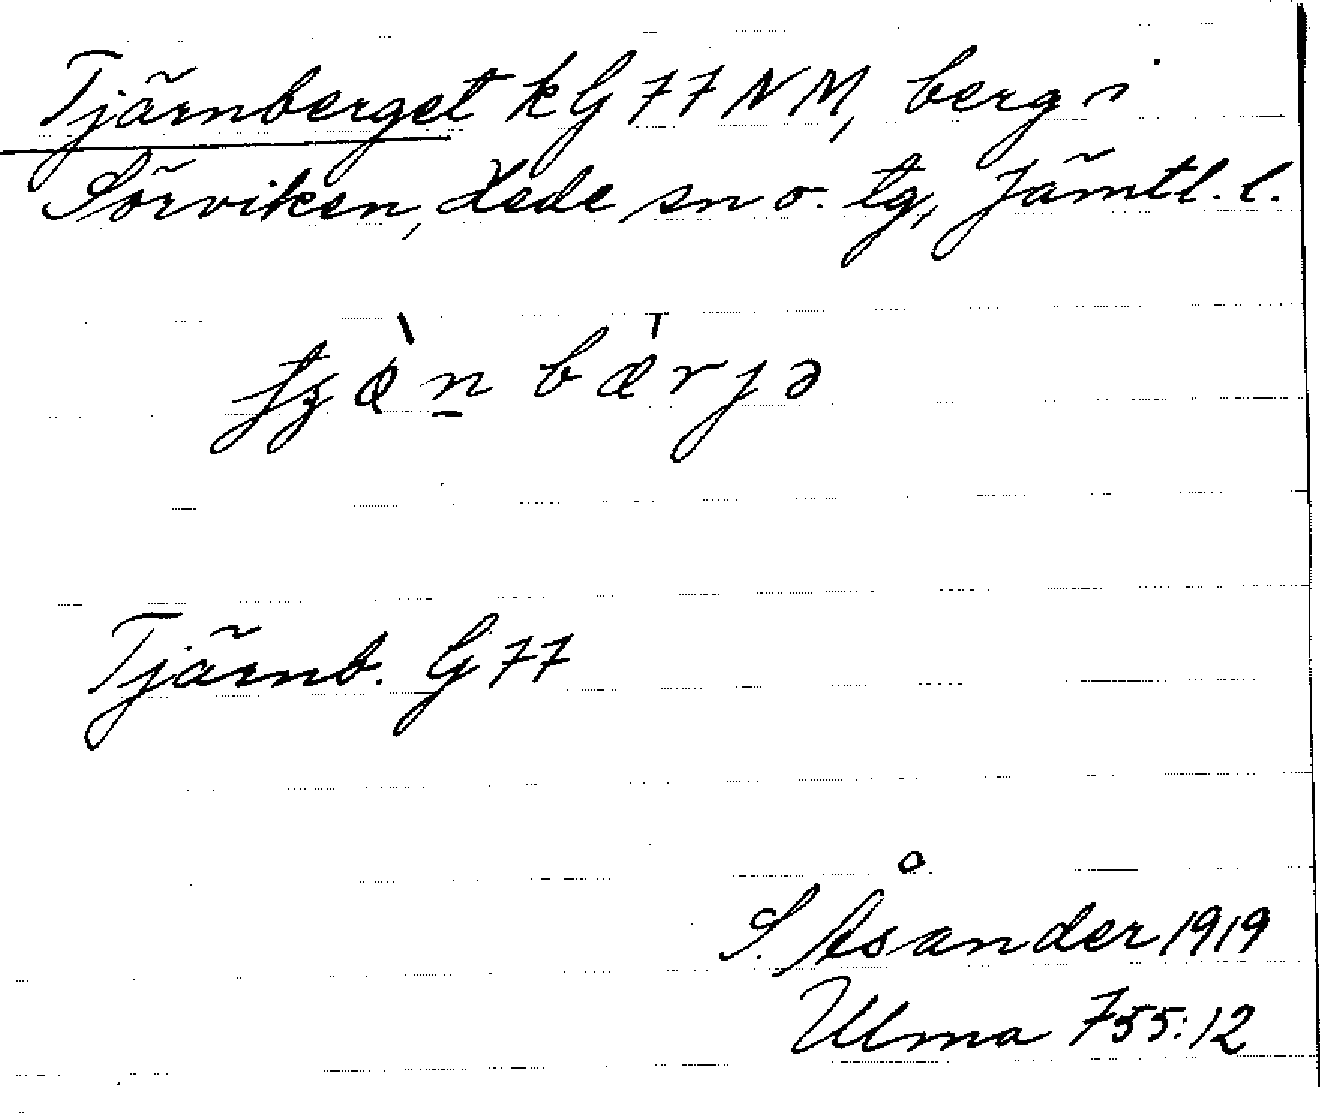 Tjärnberget k G 77 NM, berg i
Sörviken, Hede sn o. tg, Jämtl. l.
bærjə
Tjärnb. G 77
S. Åsander 1919
Ulma 755:12